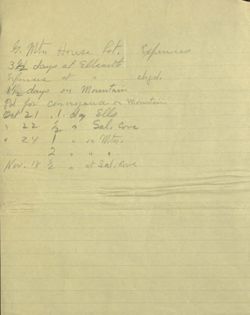 G. Mtn House Pot. Expenses
3 1/2 days at Ellsworth
Expenses at " chgd.
1 1/2 days on Mountain
Pd for conveyance on Mountain
Oct 21 . 1 day Ells
" 22 1/2 " Sal. Cove
" 24 1 " on Mtn.
2 " " "
Nov. 18 1/2 " at Sal. Cove